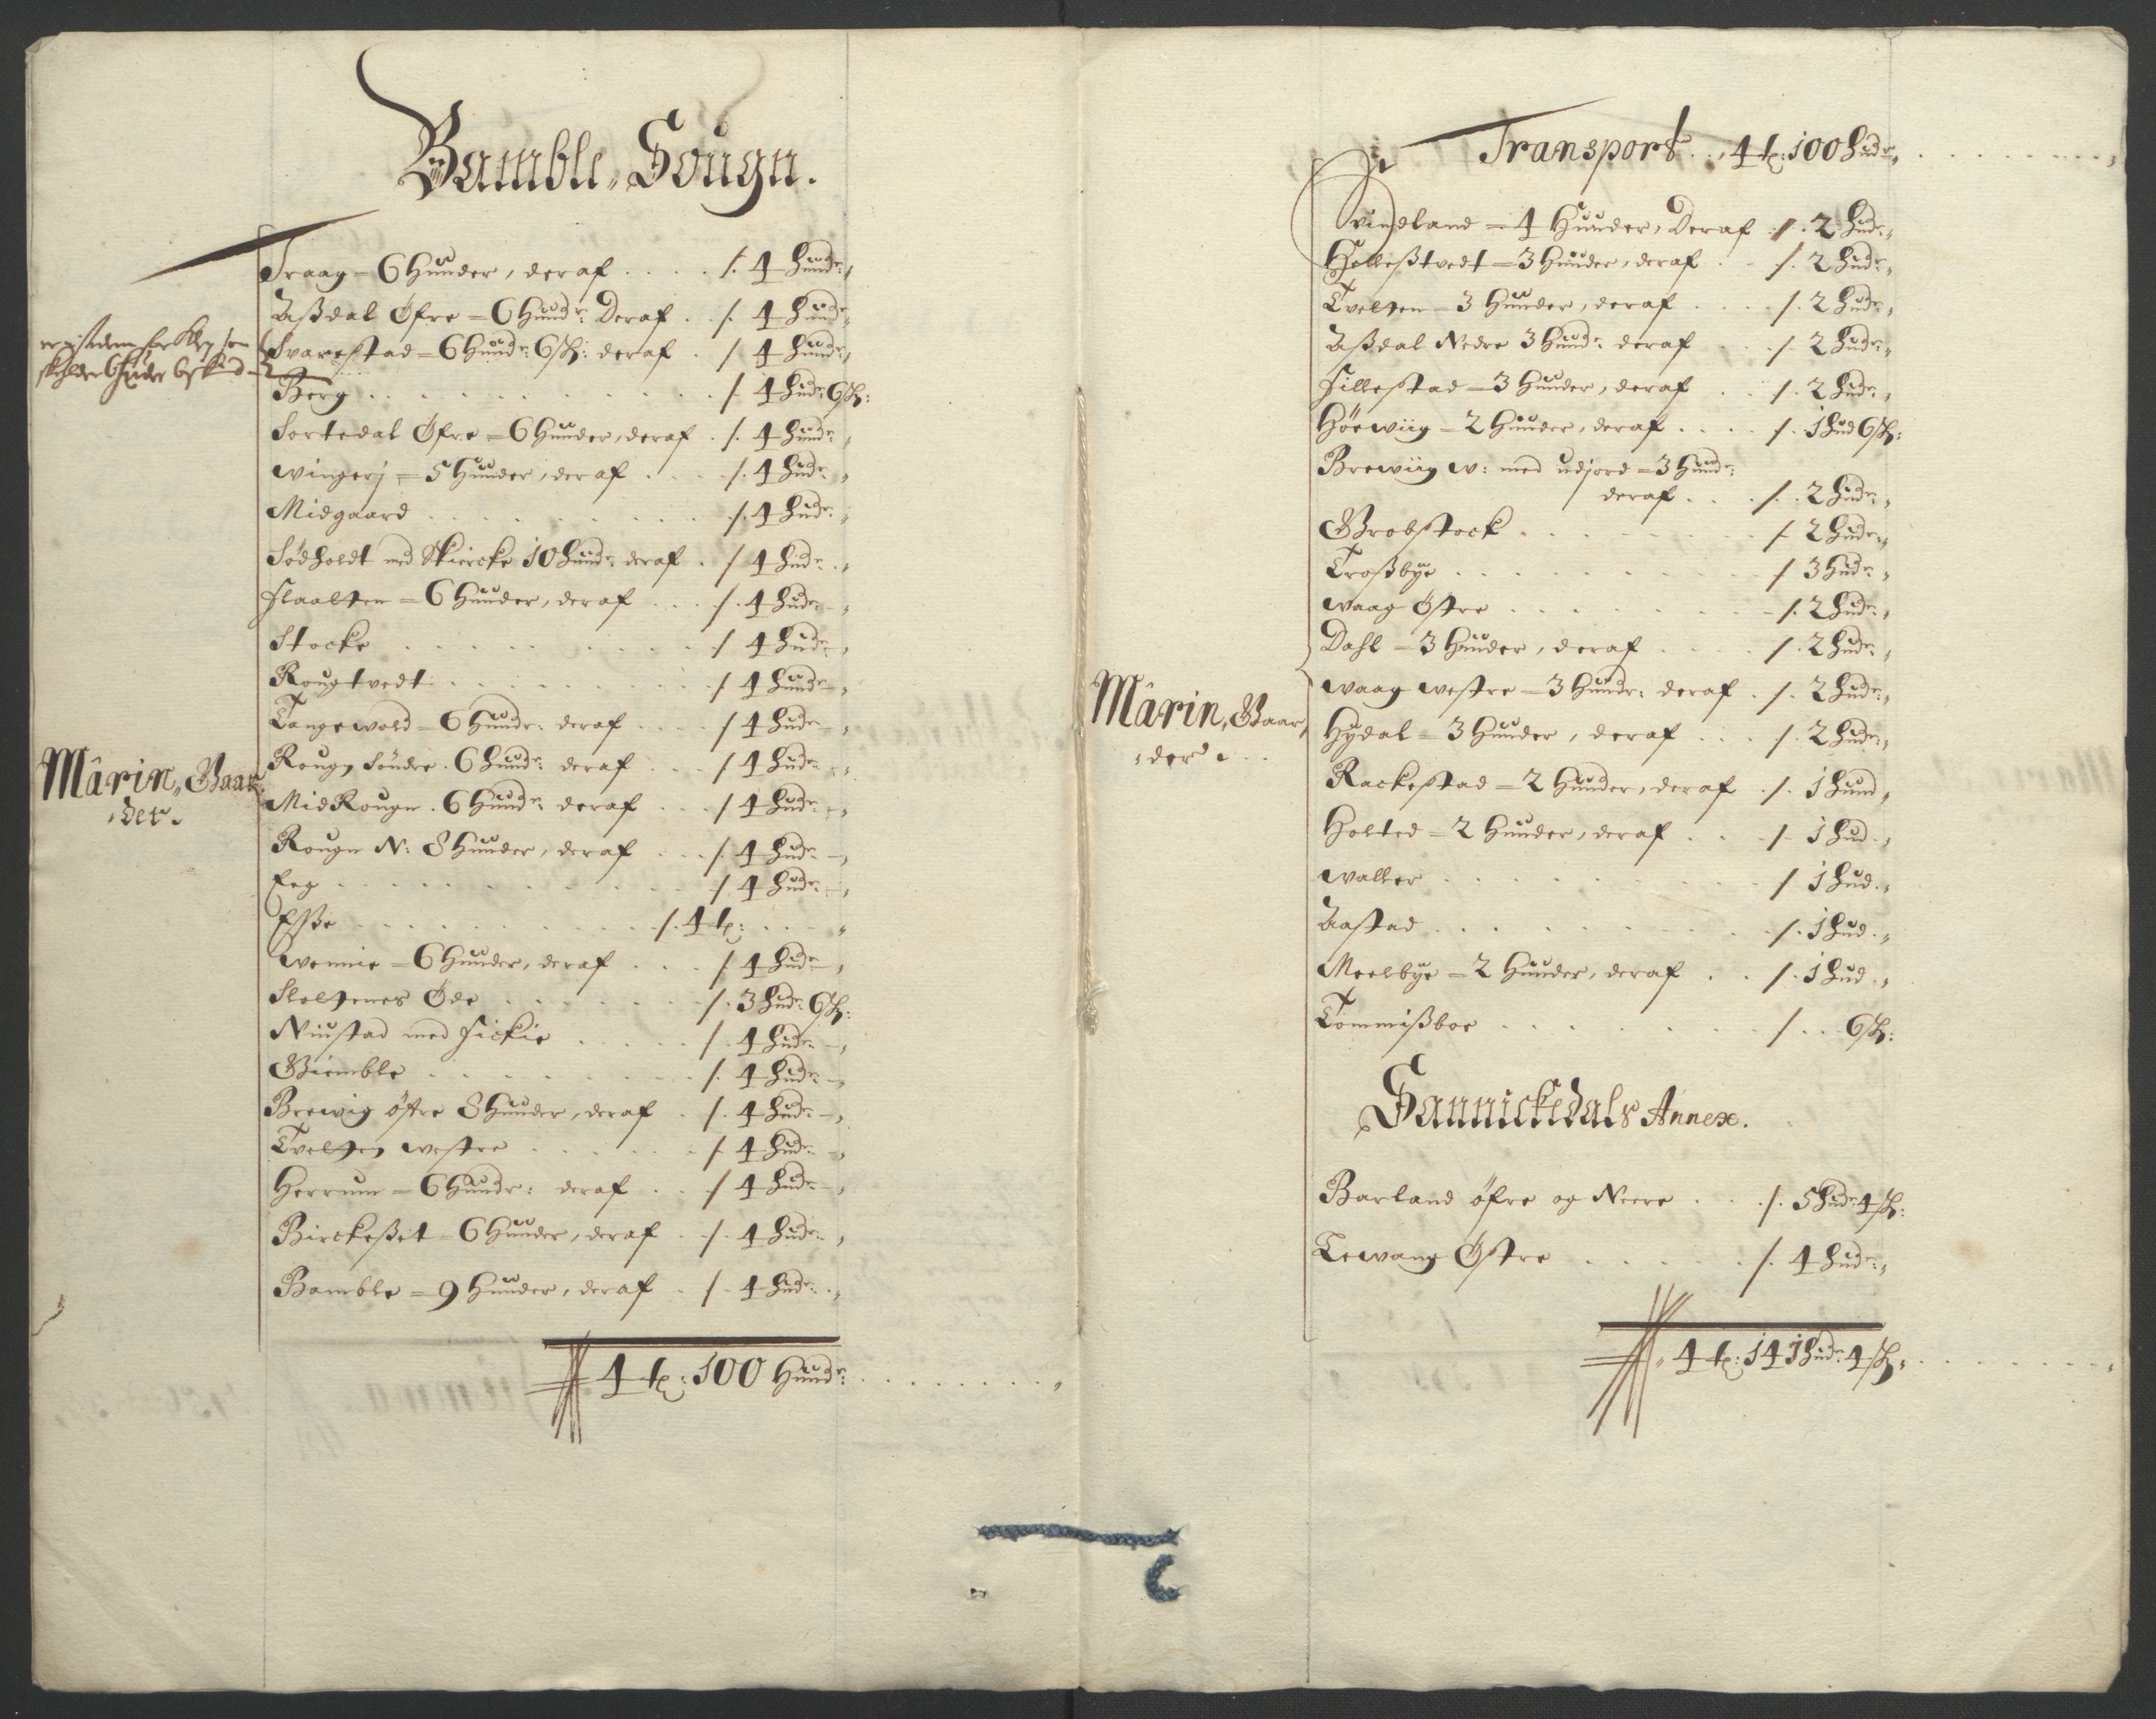 Bamble, Sougn.
Traag = 6 Hunder, deraf . . . . /. 4 Hundr:
Aaßdal Øfre = 6 Hundr: Deraf . . /. 4 Hundr:
Svarestad = 6 Hundr: 6 sk: deraf . / 4 Hundr:
Berg . . . . /. 4 Hudr: 6 sk:
Sortedal Øfre = 6 Hunder, deraf . /. 4 Hundr:
Wingerj = 5 Hunder, deraf . . . /. 4 Hudr:
Midgaard . . . . /. 4 Hudr:
Södholdt med Skiercke 10 Hundr: deraf . / 4 Hudr:
Flaalten = 6 Hunder, deraf . . . /. 4 Hudr:
Stocke . . . . / 4 Hudr:
Rougtvedt . . . . / 4 Hundr:
Tangewold = 6 Hundr: deraf . . . / 4 Hudr:
Rougn Söndre . 6 Hundr: deraf . . . / 4 Hudr:
Mârin, Gaar,
der.
Mid Rougn . 6 Hundr: deraf . . . / 4 Hudr:
Rougn N: 8 Hunder, deraf . . . /. 4 Hudr:
Eeg . . . . / 4 Hudr:
Eßße . . . . /. 4 t:
Wennie = 6 Hunder, deraf . . . / 4 Hudr:
Stoltenes Øde . . . . /. 3 Hudr: 6 sk:
Niustad med Fickie . . . . / 4 Hudr:
Giemble . . . . /. 4 Hudr:
Brewig östre 8 Hunder, deraf . /. 4 Hudr:
Tvelten westre . . . . /. 4 Hudr:
Herrum = 6 Hundr: deraf . . / 4 Hudr:
Birckeßet = 6 Hunder, deraf . /. 4 Hudr:
Bamble = 9 Hunder, deraf . /. 4 Hudr:
4 t: 100 Hundr:
Transport . . 4 t: 100 Hudr:
Vindland = 4 Hunder, Deraf /. 2 Hudr:
Helleßtvedt = 3 Hunder, deraf . . /. 2 Hudr:
Tvelten = 3 Hunder, deraf . . . . /. 2 Hudr:
Aaßdal Nedre 3 Hundr: deraf . . /. 2 Hudr:
Fillestad = 3 Hunder, deraf . . /. 2 Hudr:
Höewiig = 2 Hunder, deraf . . . . /. 1 Hud 6 sk:
Brewiig w: med udjord = 3 Hundr:
deraf . . . /. 2 Hudr:
Grobstock . . . . /. 2 Hudr:
Troßbye . . . . / 3 Hudr:
Waag Östre . . . . /. 2 Hudr:
Dahl = 3 Hunder, deraf . . . . /. 2 Hudr:
Mârin, Gaar,
der
Waag westre = 3 Hundr: deraf . /. 2 Hudr:
Hydal = 3 Hunder, deraf . . . /. 2 Hudr:
Rackestad = 2 Hunder, deraf . /. 1 Hund
Holted = 2 Hunder, deraf . . . /. 1 Hud.
Waller . . . . / 1 Hud.
Aastad . . . . /. 1 Hud.
Meelbye = 2 Hunder, deraf . . /. 1 Hud.
Tommißboe . . . . / . . 6 sk:
Sannickedals Annex.
Barland öfre og Neere . . . /. 5 Hudr: 4 sk:
Tewang Østre . . . . /. 4 Hudr:
4 t: 141 Hudr: 4 sk: